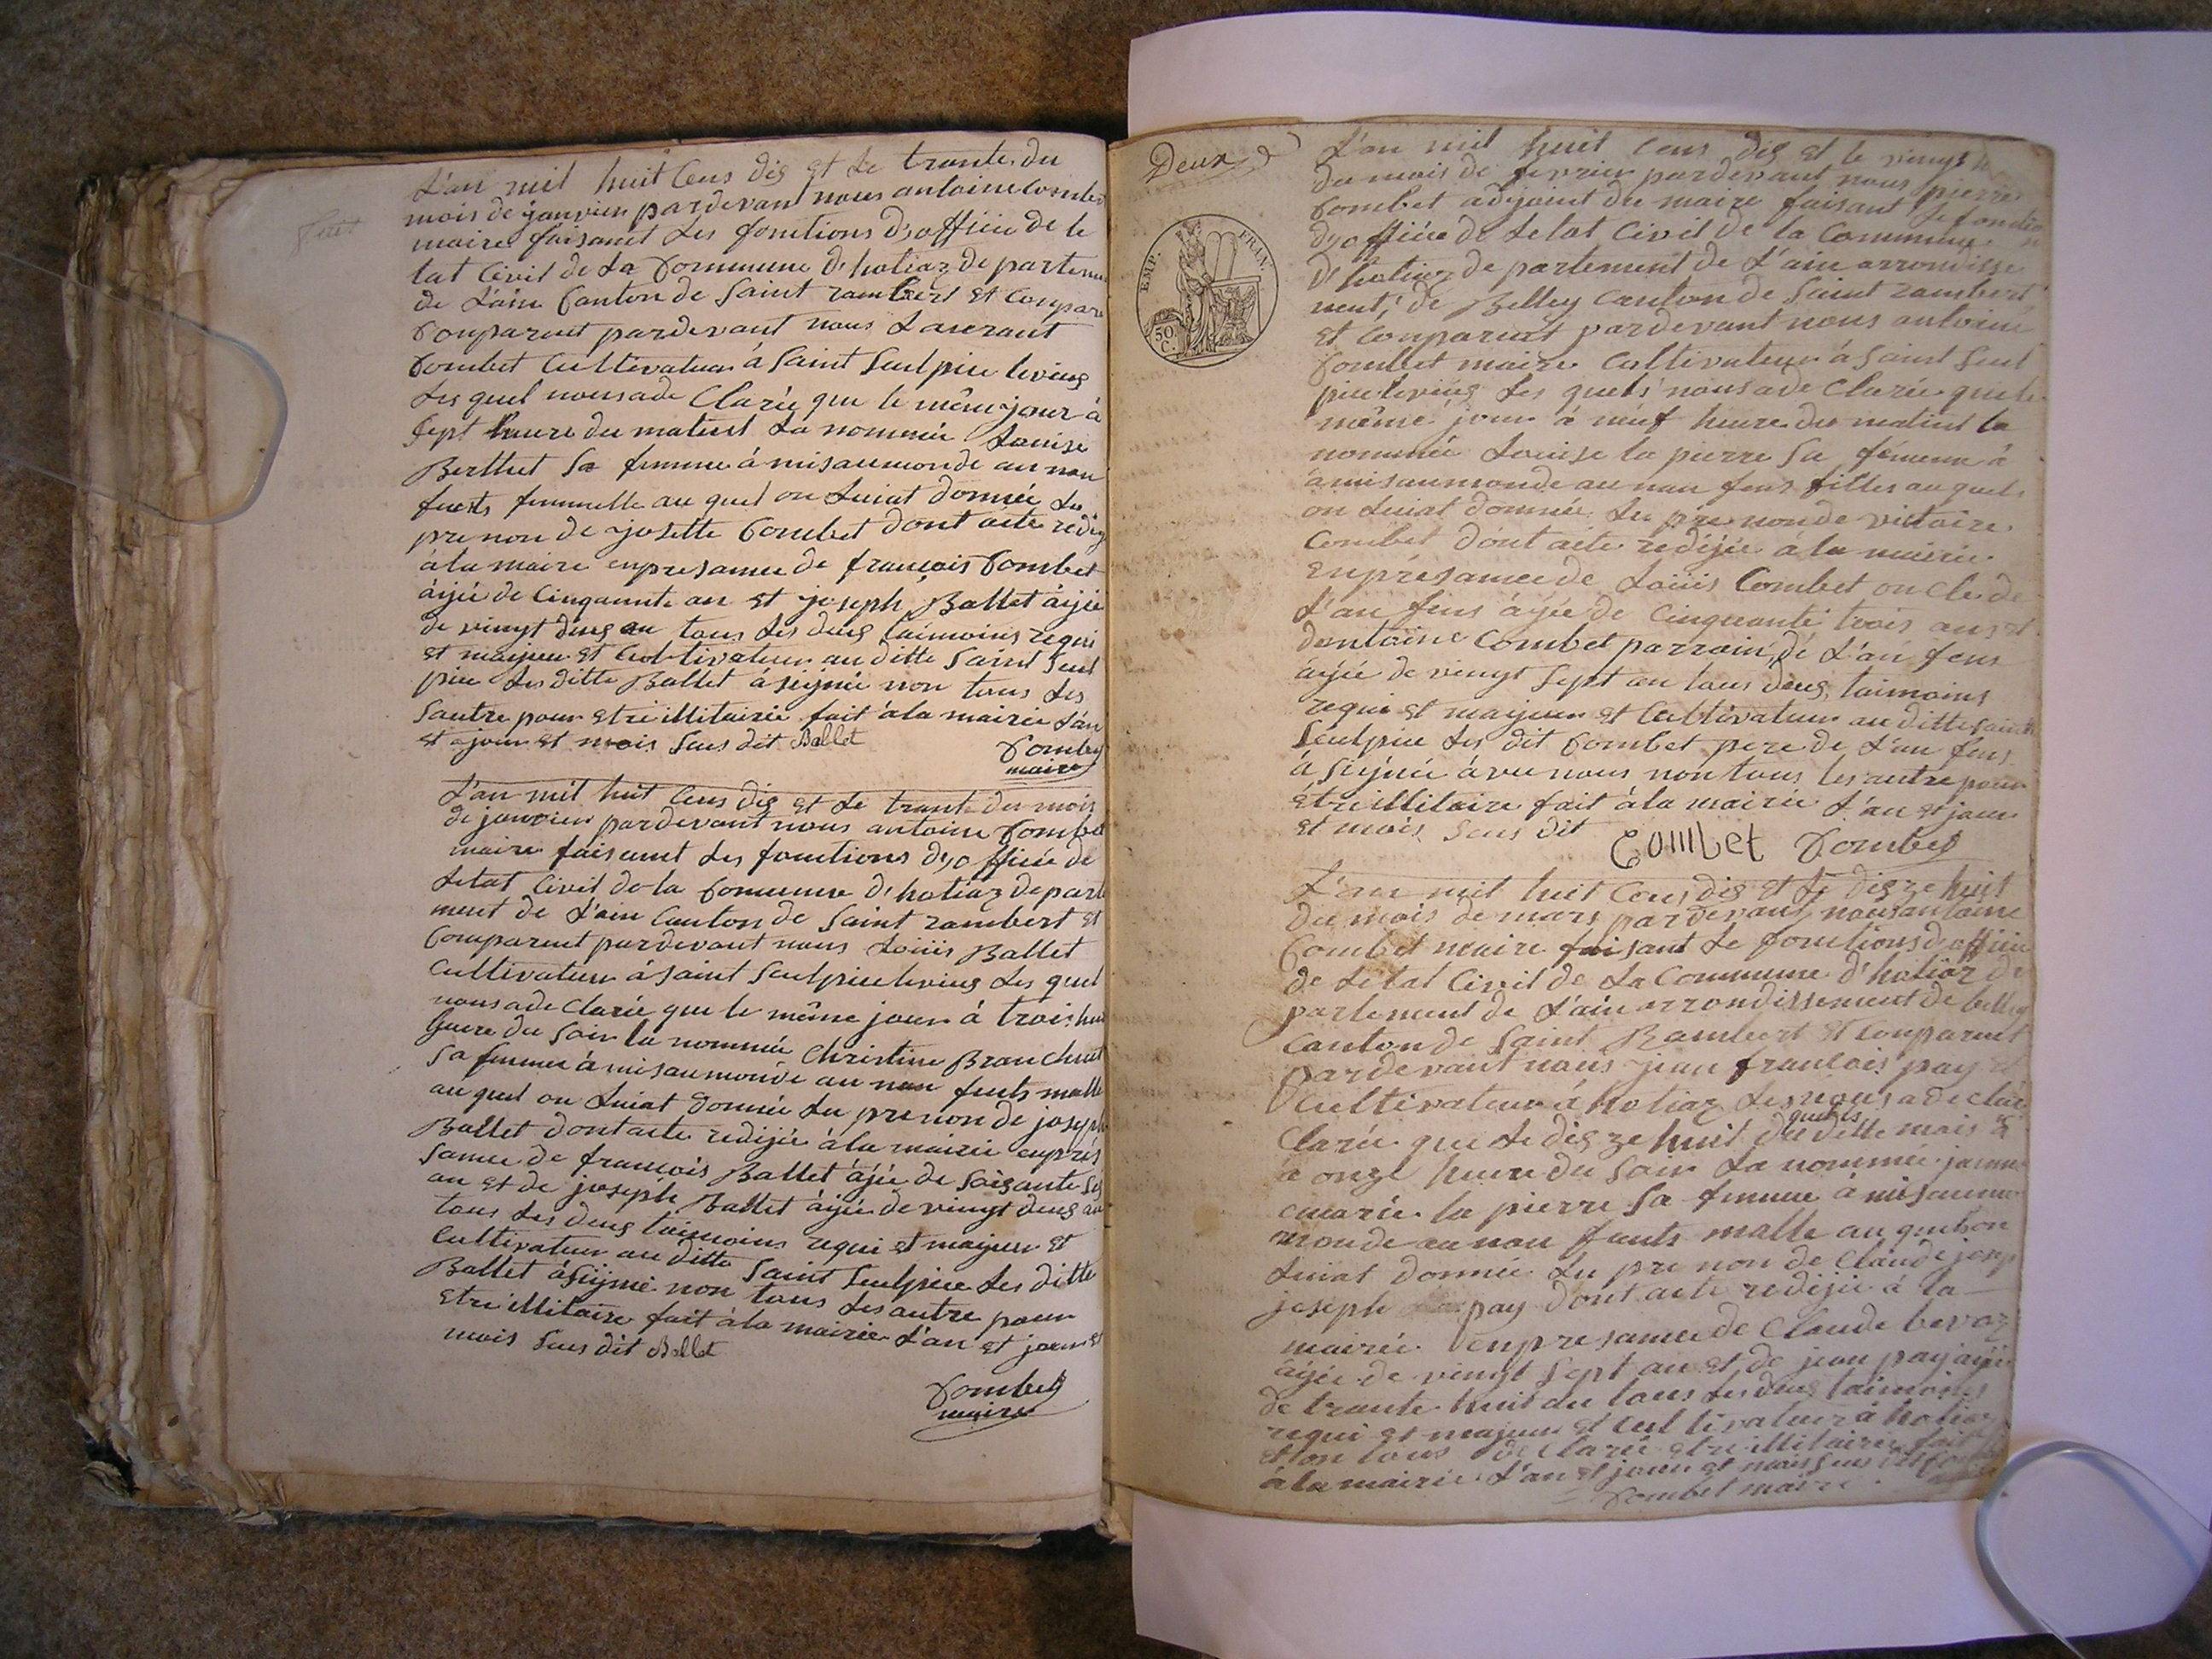 L'an mil huit Cens dis et Le trante du
mois de janvier pardevant nous antoine Combet
maire faisant Les fonctions d'officie de le
tat Civil de La Commune d'hotiaz de parteme
de L'ain Canton de Saint rambert et Conpare
Conparent pardevant nous Laurant
Combet Cultivateur à Saint Seulpice levieus
Les quel nousade Clarée que le même jour à
Sept heure du matient La nommée Louise
Berthet Sa femme à misaumonde au nan
fents fummelle au quel on Luiat donnée Lu
pre non de josette Combet dont acte redig
à la maire enpresance de françois Combet
âjée de Cinquante an et joseph Ballet âjée
de vingt deus an tous Les deus taimoins requi
et majeur et Cultivateur au ditte Saint Seul
pice Les ditte Ballet à seignée non tous Les
Sautre pour etre illitairée fait à la mairie L'an
et jour et mois Sus dit Ballet
Combet
maire
L'an mil huit Cens dis et Le trante du mois
de janvier pardevant nous antoine Combet
maire faisant Les fonctions dyofficie de
Letat Civil de la Commune d'hotiaz depart
ment de L'ain Canton de Saint rambert et
Comparent pardevant nous Louis Ballet
Cultivateur à Saint Seulpice levieus Les quel
nousade Clarée que le même jour à trois heu
heure du Soir la nommée Christine Branchut
Sa femme à misaumonde au nan fents malle
au quel on Luiat donnée Lu prenon de joseph
Ballet dontacte redijée à la mairie enprés
Sance de françois Ballet âjée de Soisante
an et de joseph Ballet âjée de vingt deus an
tous Les deus taimoins requi et majeur et
Cultivateur au ditte Saint Seulpice Les ditte
Ballet à Sijnie non tous Les autre pour
etre illitaire fait à la mairie L'an et jour et
mois Sus dit Ballet
Combet
maire
Deux
EMP. FRAN.
50
C.
L'an mil huit Cens dis et le vingt
du mois de fevrier pardevant nous pierre
Combet adjoint du maire faisant Le fonction
dyofficie de Letat Civil de la Commune
d'hotiaz de partement de L'ain arrondisse
ment, de Belley Canton de Saint rambert
et Conparent pardevant nous antoine
Combet maire Cultivateur à Saint Seul
pice levieus Les quels nousade Clarée que le
même jour à neuf heure du matient la
nommée Louise la pierre Sa fémme à
à misaumonde au nan fens filles au quel
on Luiat donnée Lu pre nonde victoire
Combet dont acte redijée à la mairie
enprésance de Louis Combet oncle de
L'an fens âjée de Cinquante trois ans et
dentoine Combet parrain, dé L'an fens
âjée de vingt Sept an tous deus, taimoins
requi et majeur et Cultivateur au ditte Saint
Seulpice Les dit Combet pere de L'an fens
à Seignée àvec nous non tous les autre pour
étre illitaire fait à la mairie L'an et jour
et mois Sus dit Combet Combet
L'an mil huit Cens dis et Le dis ze huit
du mois de mars pardevant nous antoine
Combet maire faisant Le fonctions d'officie
de Letat Civil de La Commune d'hotiaz de
partement de L'ain arrondissement de belley
Canton de Saint Rambert et Conparent
pardevant nous jean françois pay
Cultivateur à hotiaz Les nous a de Clar
quels
Clarée que Le dis ze huit du ditte mois à
à onze heure du Soir La nommee janne
marie la pierre Sa femme à misaumo
monde au nan fants malle au quel on
Luiat donnée Lu pre non de Claude josep
joseph pay dont acte redijée à la
mairie enpresance de Claude bevoz
âjée de vingt Sept an et de jean pay âjée
de trante huit an tous Les deus taimoins
requi et majeur et Cultivateur à hotiaz
et on tous de Clarée etre illitaire fait
à la mairie L'an et jour et mois Sus dit
Combet maire